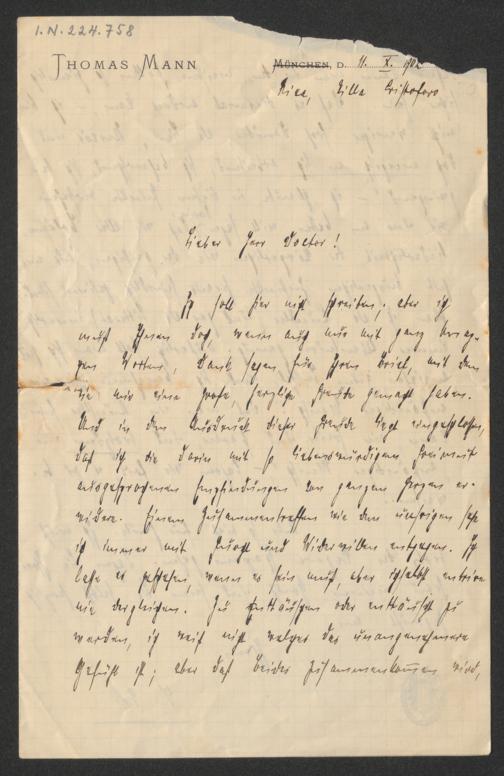 I.N. 224.758
THOMAS MANN
MÜNCHEN, D. 11. X. 1902
Riva, Villa Cristoforo
Lieber Herr Doctor!
Ich soll hier nicht schreiben; aber ich
muß Ihnen doch, wenn auch nur mit ganz
Worten, Dank sagen für Ihren Brief, mit dem
Sie mir eine große, herzliche Freude gemacht haben.
Und in dem Ausdruck dieser Freude liegt eingeschlossen,
daß ich die darin mit so liebenswürdigem Freimut
ausgesprochenen Empfindungen von ganzem Herzen er-
widere. Einem Zusammentreffen wie dem unsrigen seh
ich immer mit Furcht und Widerwillen entgegen. Ich
lasse es geschehen, wenn es sein muß, aber ich selbst
nie dergleichen. Zu enttäuschen oder enttäuscht zu
werden, ich weiß nicht welches das unangenehmere
Gefühl ist; aber daß beides zusammenkommen wird,